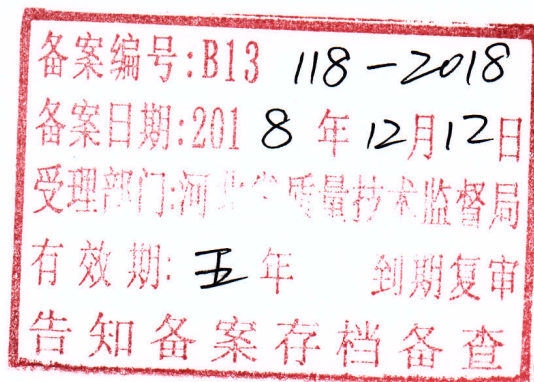 备案编号:B13 118-2018
备案日期:2018年12月12日
受理部门:河北省质量技术监督局
有效期:五年 到期复审
告知备案存档备查